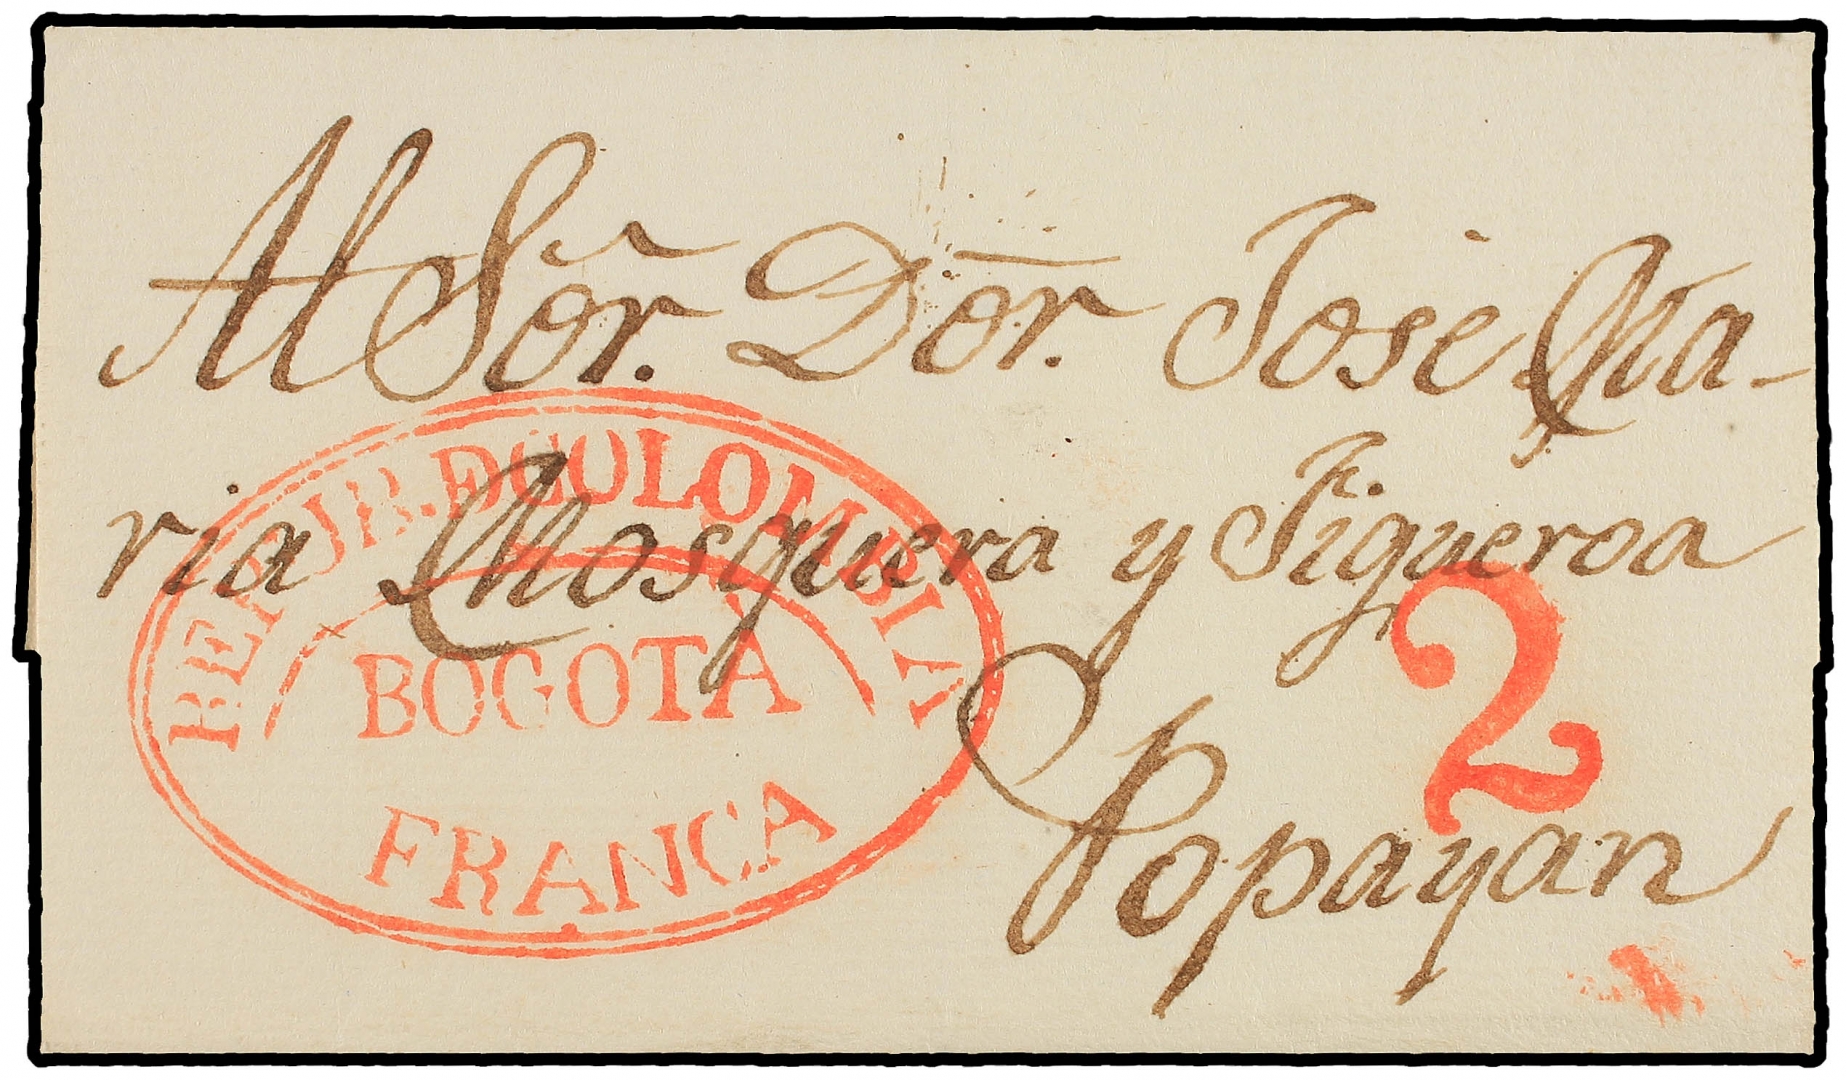 Al Sõr. Dōr. José Ma-
ria Mosquera y Figueroa
Popayan
REPUB. D COLOMBIA
BOGOTA
FRANCA
2